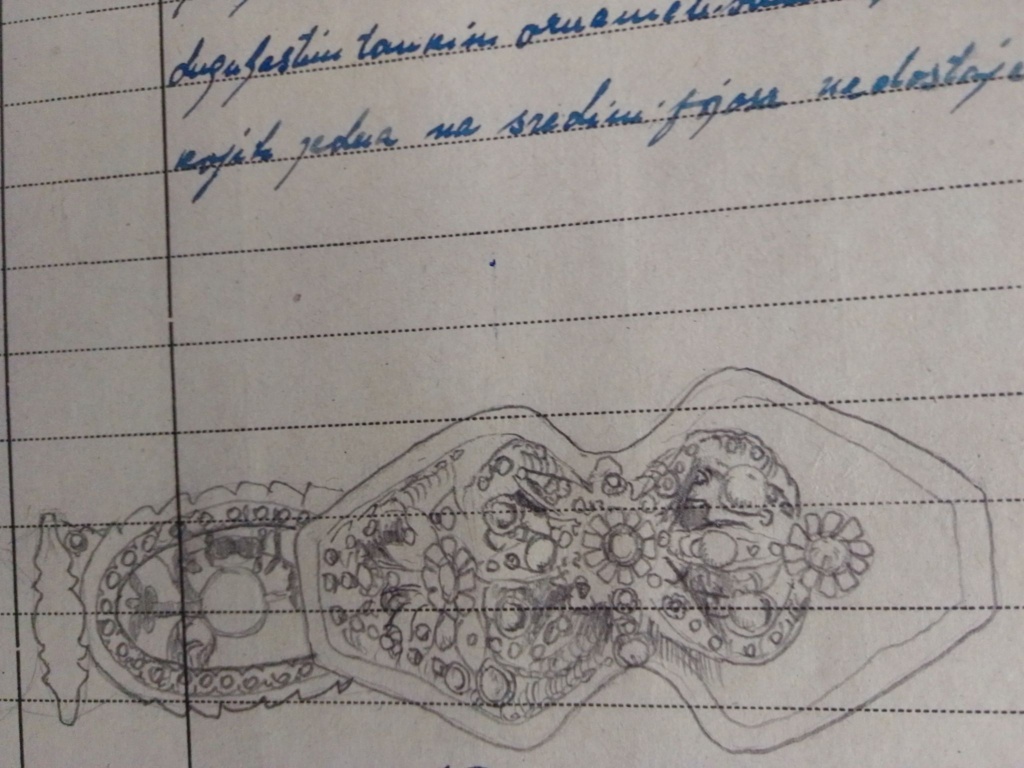 duguljastim tankim ornamen
kojih jedna na sredini pojasa nedostaje